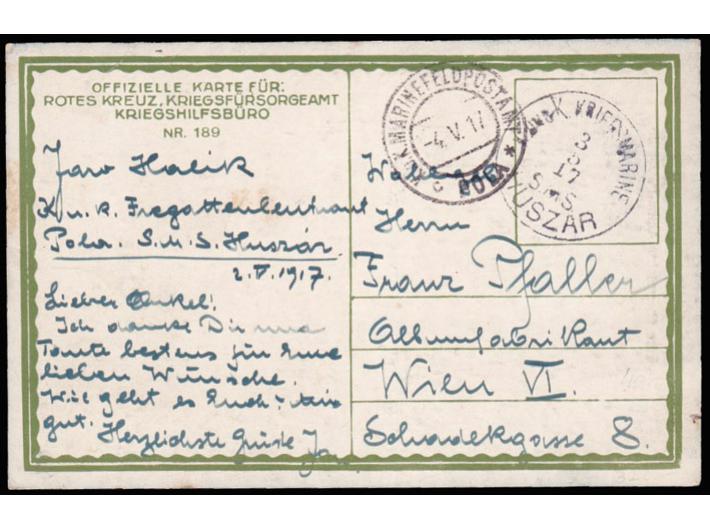 OFFIZIELLE KARTE FÜR:
ROTES KREUZ, KRIEGSFÜRSORGEAMT
KRIEGSHILFSBÜRO
NR. 189
Jaro Halik
K. u. k. Fregattenleutnant
Pola. S.M.S. Huszár.
2.V.1917.
Lieber Onkel!
Ich danke Dir und
Tante bestens für Eure
lieben Wünsche.
Wie geht es Euch? Mir
gut.
Herzlichste Grüße
K.u.K. MARINEFELDPOSTAMT
-4.V.17
c POLA *
K. KRIEGSMARINE
3
5
17
S.M.S.
HUSZÁR
Herrn
Franz Pfaller
Albumfabrikant
Wien VI.
Schadekgasse 8.